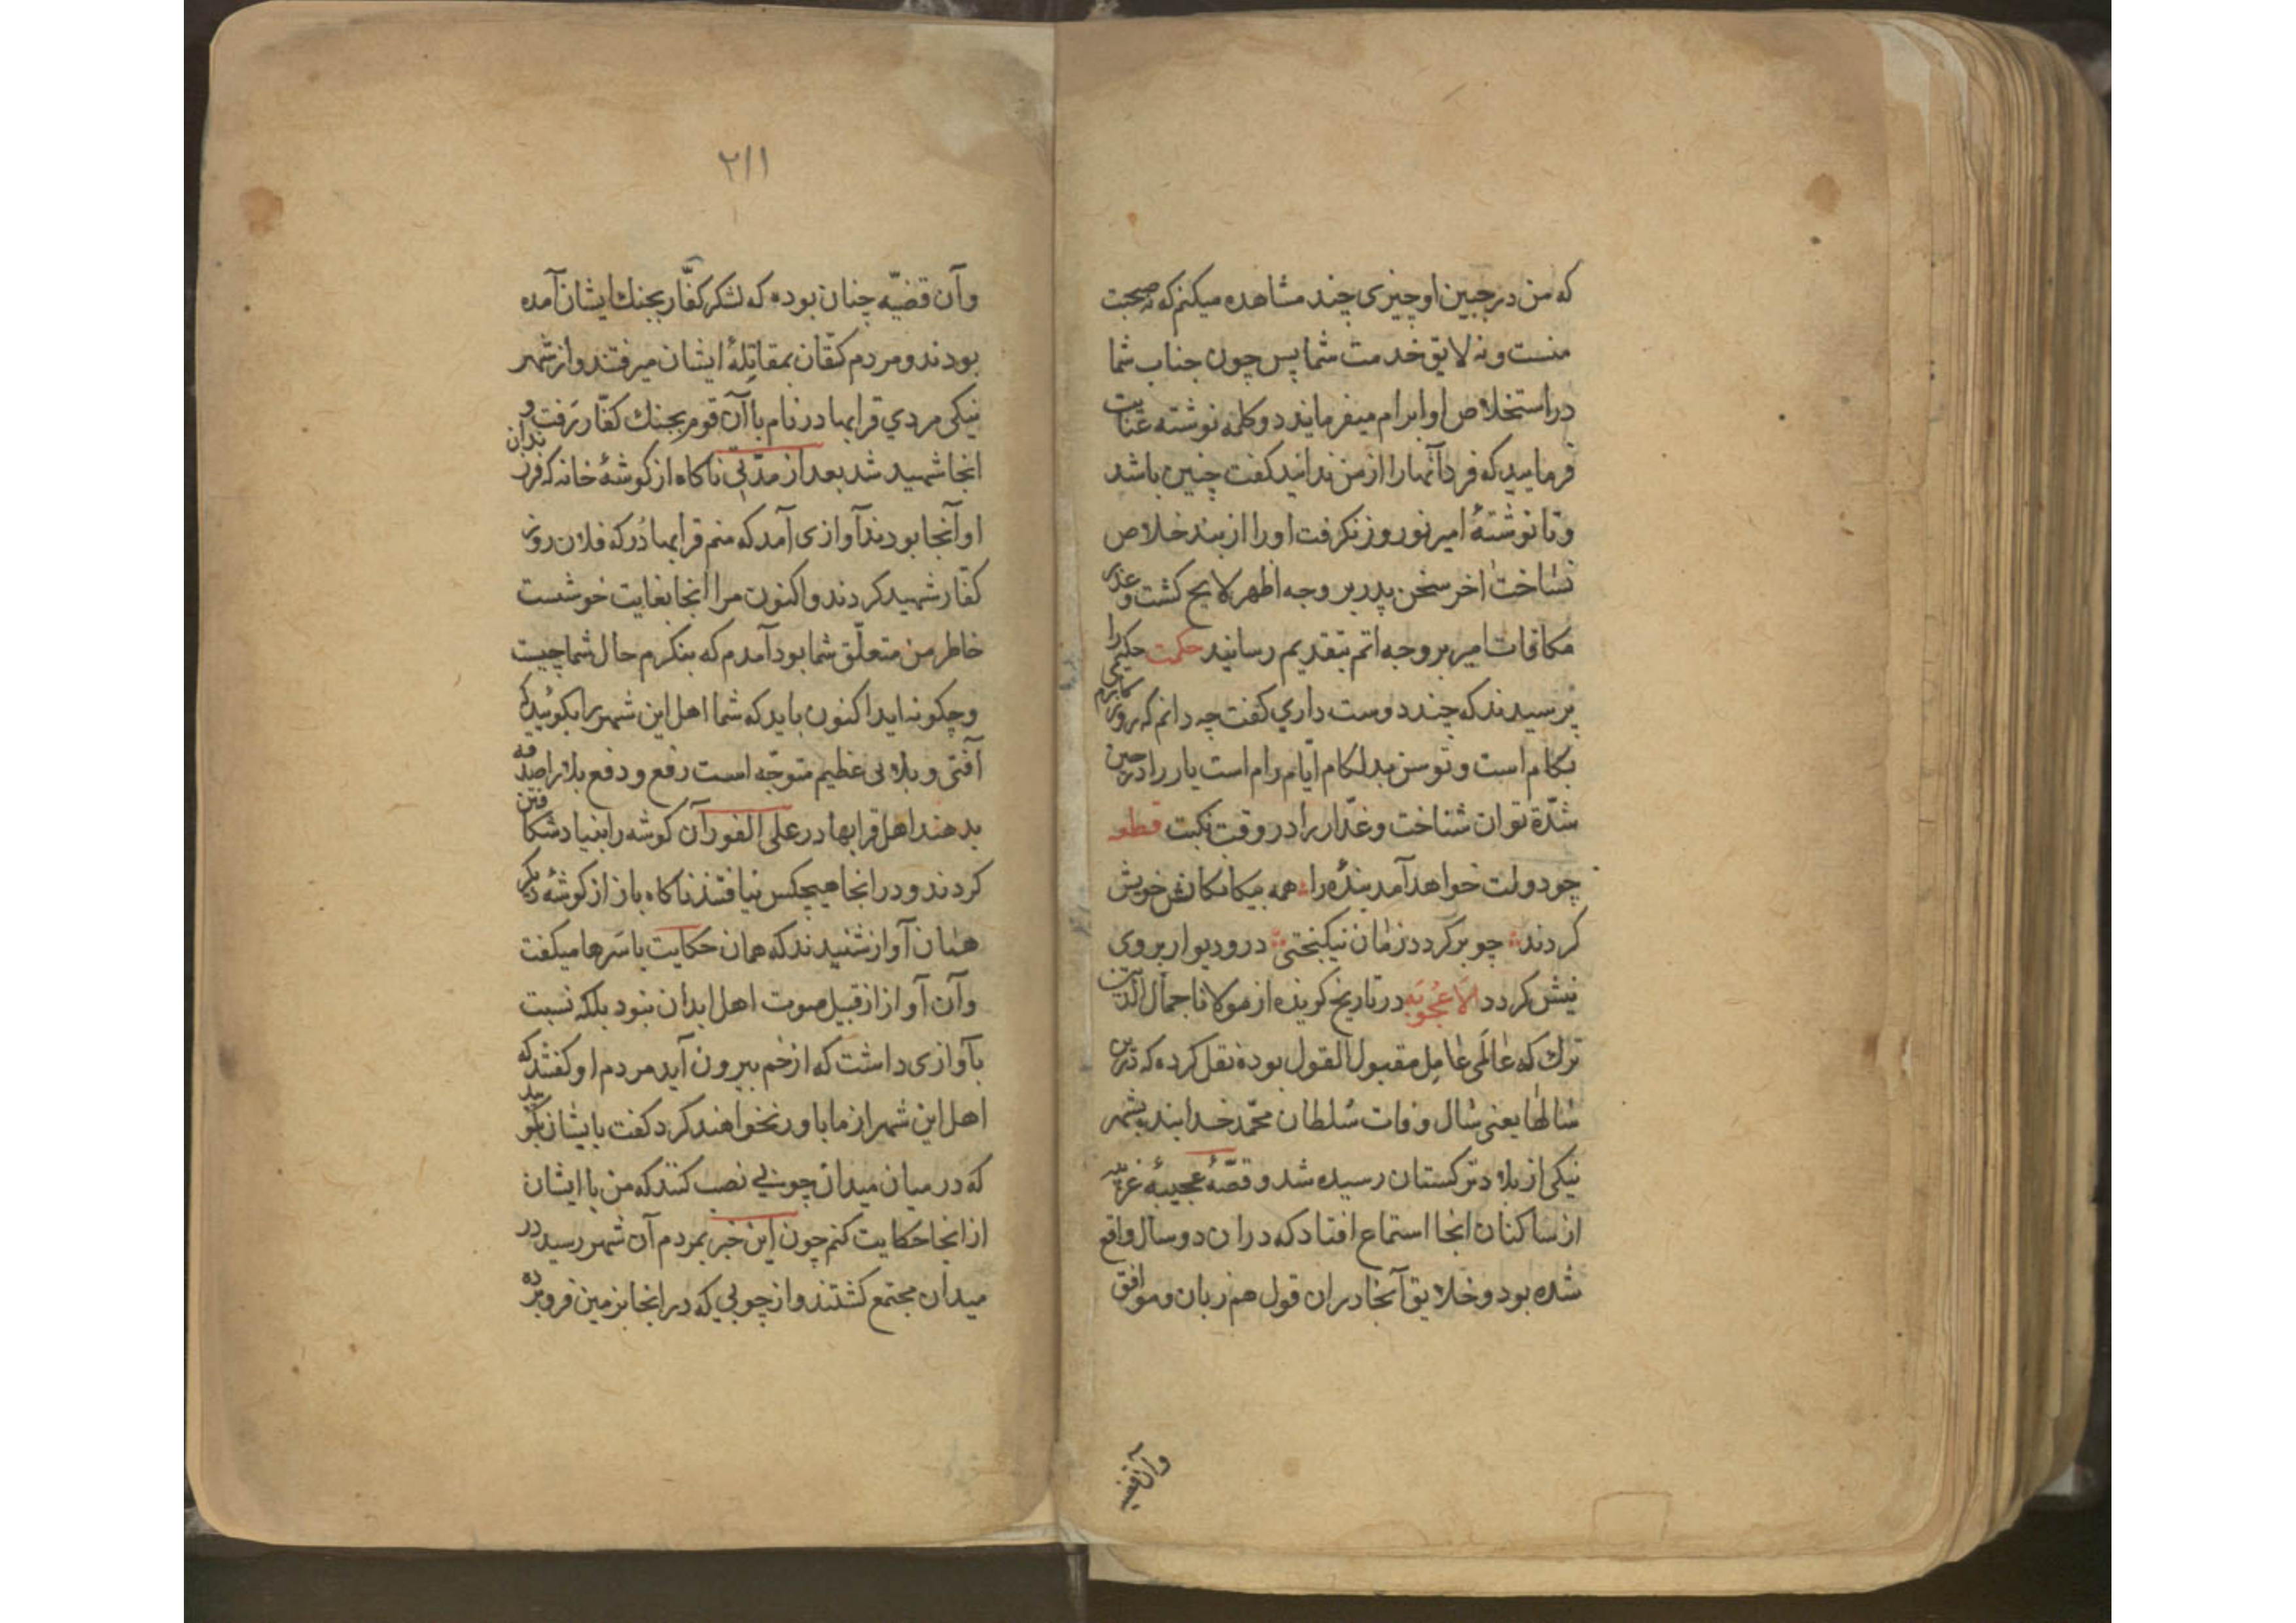 که من در جبین او چیزی چند مشاهده میکنم که نه صحبت
منست و نه لایق خدمت شما پس چون جناب شما
در استخلاص او ابرام میفرمایند دو کلمه نوشته عنایت
فرمایید که فردا آنها را از من ندانید کفت چنین باشد
و تا نوشتهٔ امیر نوروز نکرفت او را از بند خلاص
نساخت اخر سخن پدر بر وجه اظهر لایح کشت و عذر
مکافات امیر بر وجه اتم بتقدیم رسانید حکمت حکیمی را
پرسیدند که چند دوست داری کفت چه دانم که روزکارم
بکام است و توسن بدلکام ایّام رام است یار را در حین
شدّة توان شناخت و غدّار را در وقت نکبت قطعه
چو دولت خواهد آمد بنده را همه بیکانکانش خویش
کردند چو برکردد زمان نیکبختی در و دیوار بر وی
نیش کردد الاعجوبه در تاریخ کزیده از مولانا جمال الدین
ترك که عالمی عامل مقبول القول بوده نقل کرده که درین
سالها یعنی سال وفات سلطان محمّد خدابنده بشهر
نیکی از بلاد ترکستان رسیده شد و قصّهٔ عجیبهٔ غریبه
از ساکنان انجا استماع افتاد که در ان دو سال واقع
شده بود و خلایق آنجا در ان قول هم زبان و موافق
وآن قضیه
۲۱۱
وآن قضیّه چنان بوده که لشکر کفّار بجنك ایشان آمده
بودند و مردم کتقان بمقاتلهٔ ایشان میرفتند و از شهر
نیکی مردي قرابهادر نام با آن قوم بجنك کفّار رفت و
انجا شهید شد بعد از مدّتی ناکاه از کوشهٔ خانه که فرزندان
او آنجا بودند آوازی آمد که منم قرابهادر که فلان روز
کفّار شهید کردند و اکنون مرا انجا بغایت خوشست
خاطر من متعلّق شما بود آمدم که بنکرم حال شما چیست
و چکونه اید اکنون باید که شما اهل این شهر را بکوئید که
آفتی و بلائی عظیم متوجّه است رفع و دفع بلا را صدقه
بدهند اهل قرابهادر علی الفور آن کوشه را بنیاد شکافتن
کردند و در انجا هیچکس نیافتند ناکاه باز از کوشهٔ دیکر
همان آواز شنیدند که همان حکایت باسرها میکفت
وآن آواز از قبیل صوت اهل ابدان نبود بلکه نسبت
بآوازی داشت که از خم بیرون آید مردم او کفتند که
اهل این شهر از ما باور نخواهند کرد کفت بایشان بکویید
که در میان میدان چوبی نصب کنند که من با ایشان
از انجا حکایت کنم چون این خبر بمردم آن شهر رسید در
میدان مجتمع کشتند و از چوبی که در انجا بزمین فرو برده